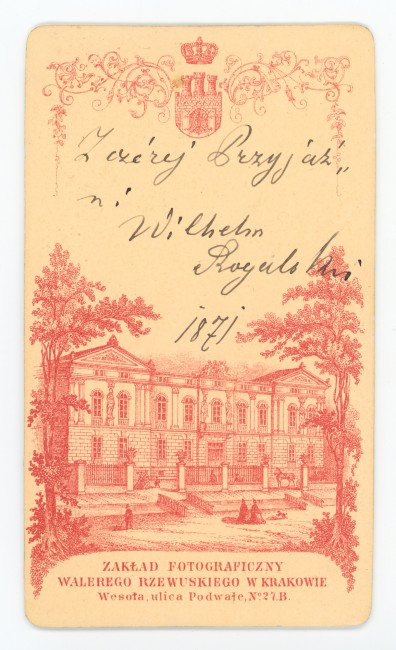 Z czérej Przyjaź„
ni
Wilhelm
Rogalski
1871
ZAKŁAD FOTOGRAFICZNY
WALEREGO RZEWUSKIEGO W KRAKOWIE
Wesoła, ulica Podwale, No 27.B.